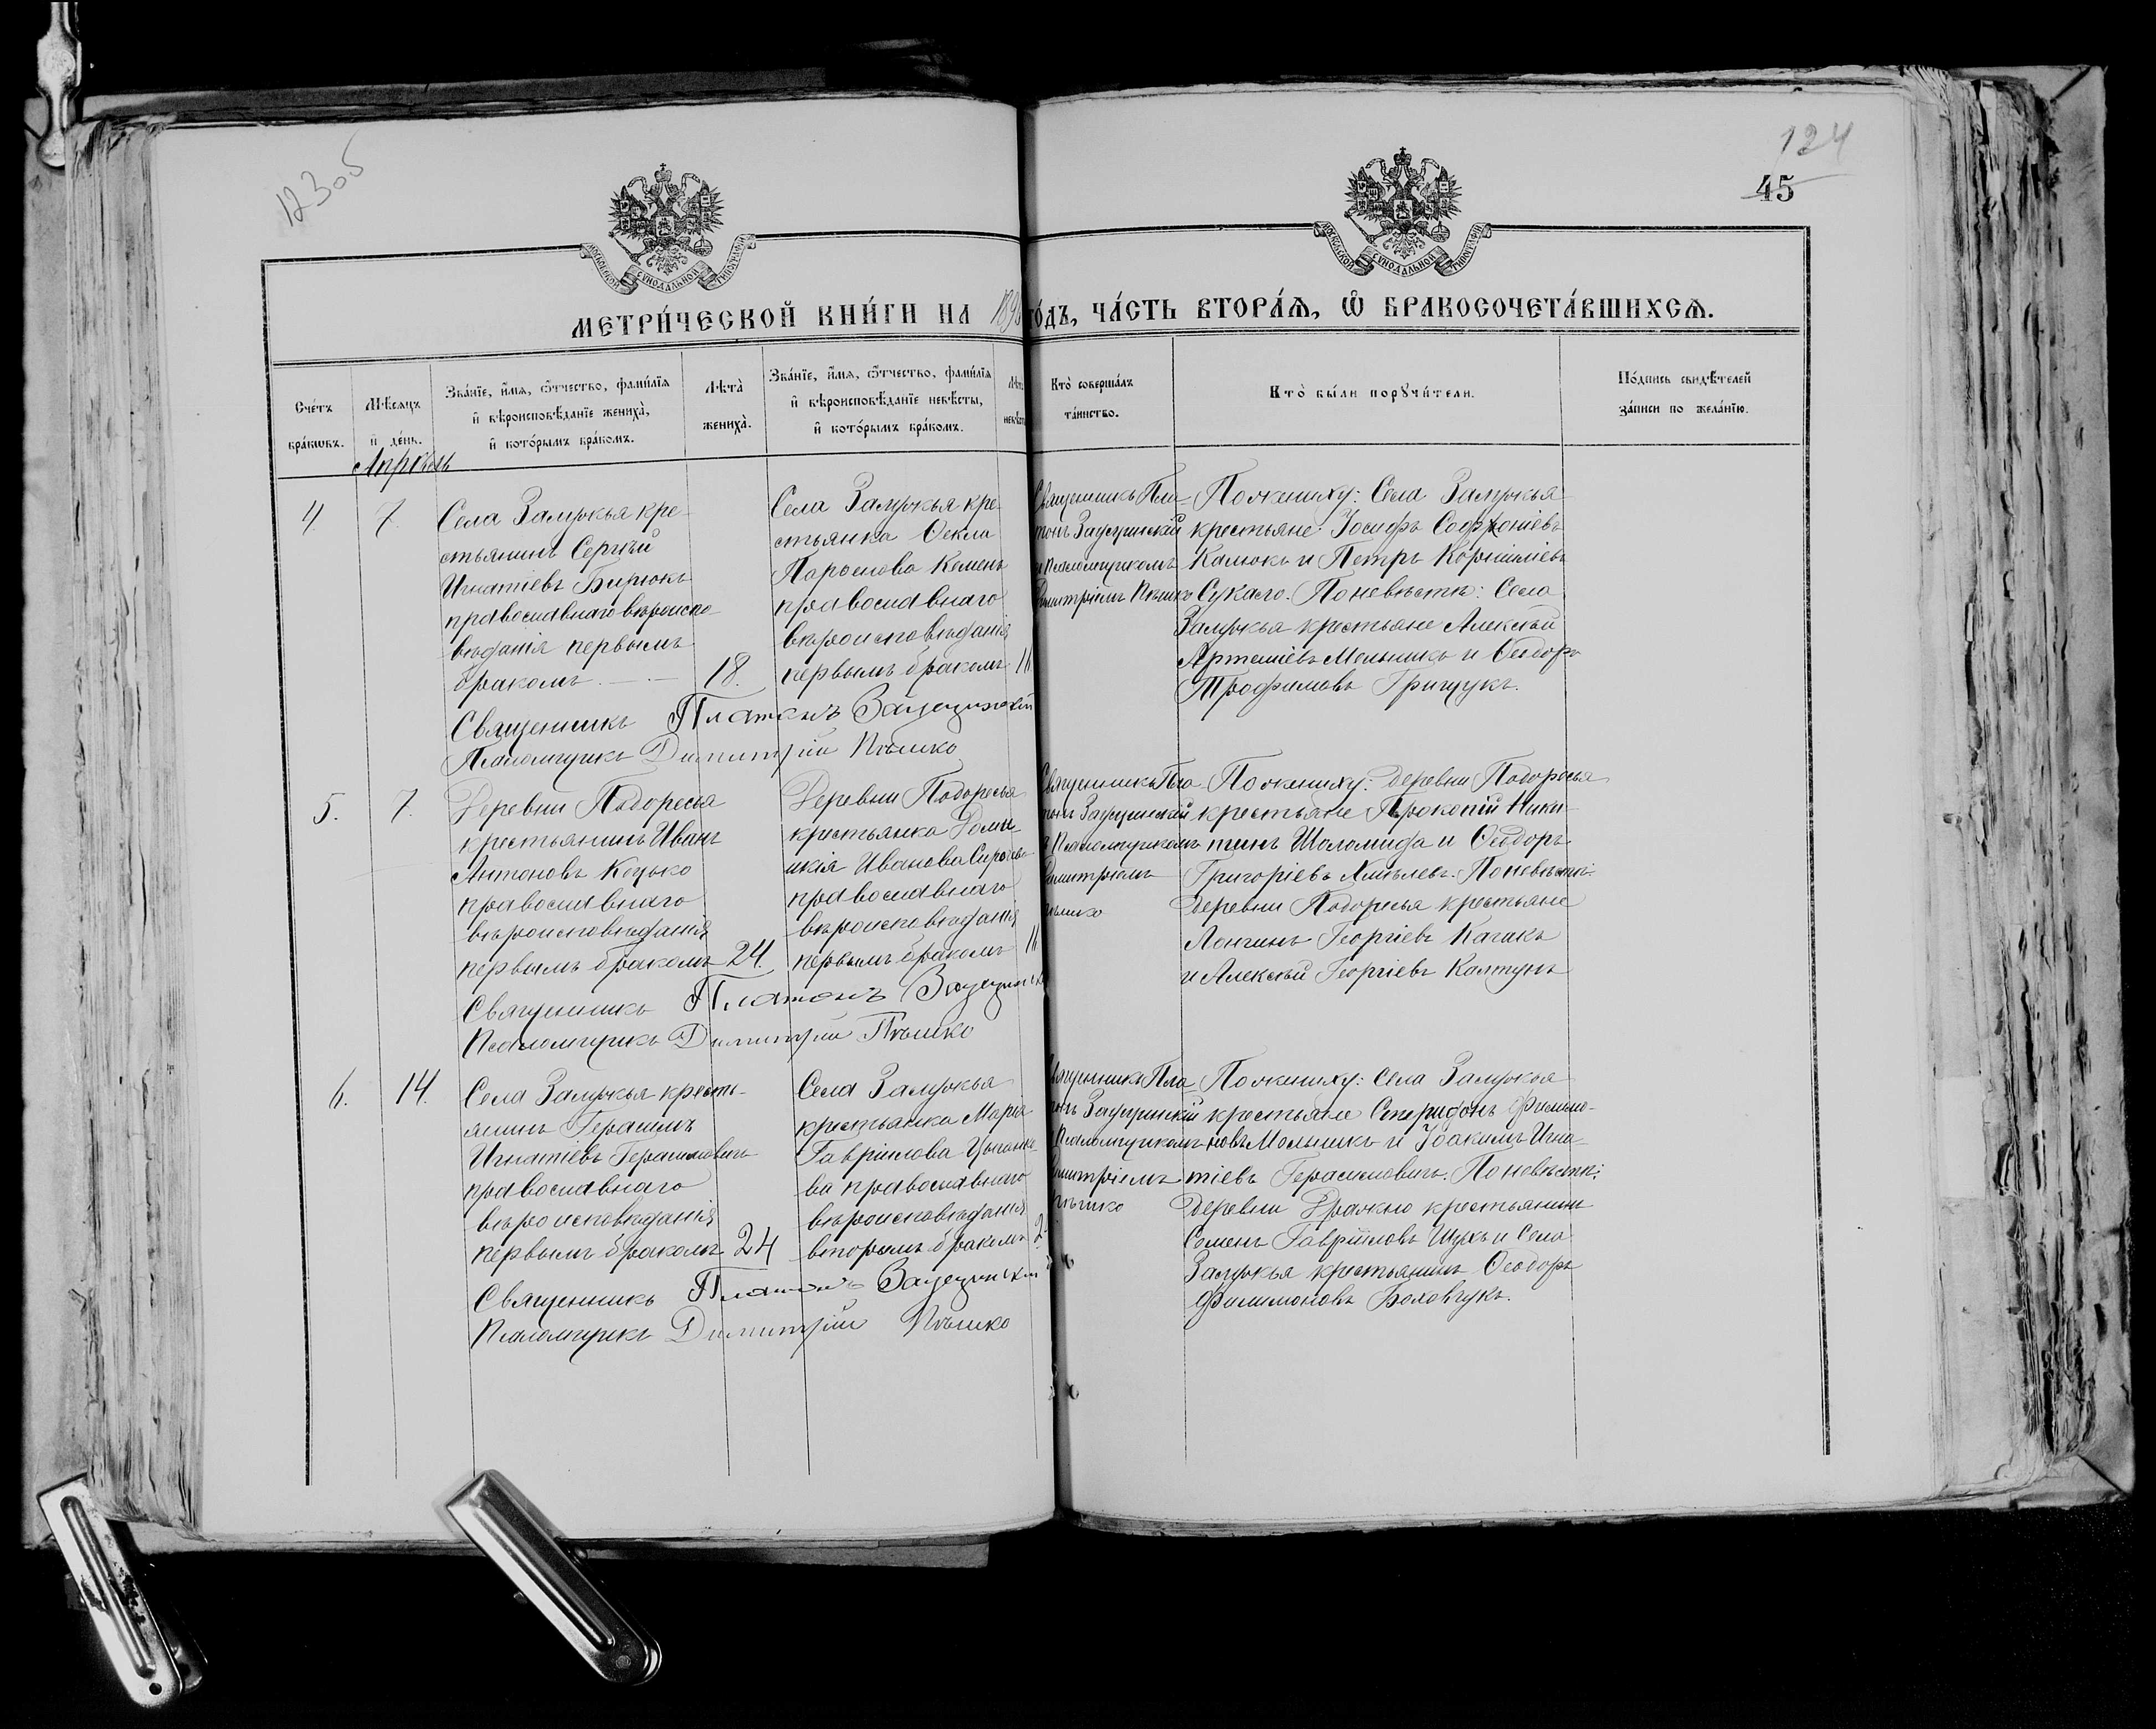 12305
124
45
МОСКОВСКОЙ СУНОДАЛЬНОЙ ТИПОГРАФІИ
МОСКОВСКОЙ СУНОДАЛЬНОЙ ТИПОГРАФІИ
МЕТРИ́ЧЕСКОЙ КНИ́ГИ НА 189 ГО́ДЪ, ЧА́СТЬ ВТОРА́Ѧ, Ѽ БРАКОСОЧЕТА́ВШИХСѦ.
Сче́тъ бра́кѡвъ.
Мѣ́сѧцъ и҆ де́нь.
Зва́нїе, и҆́мѧ, ѻ҆́тчество, фами́лїѧ
и҆ вѣроисповѣ́данїе жениха̀,
и҆ кото́рымъ бра́комъ.
Лѣ́та̀ жениха̀.
Зва́нїе, и҆́мѧ, ѻ҆́тчество, фами́лїѧ
и҆ вѣроисповѣ́данїе невѣ́сты,
и҆ кото́рымъ бра́комъ.
Кто̀ соверша́лъ
та́инство.
Кто̀ бы́ли порꙋчи́тели.
По́дпись свидѣ́телей
за́писи по жела́нїю.
Апрѣль
4. 7.
Села Залужья кре-
стьянинъ Сергѣй
Игнатіевъ Бирюкъ
православнаго вѣроиспо-
вѣданія первымъ
бракомъ
18.
Села Залужья кре-
стьянка Ѳекла
Кемень
православнаго
вѣроисповѣданія
первымъ бракомъ
Священникъ Пла-
тонъ
и Псаломщикомъ
Димитріемъ Пѣшко
По жениху: Села Залужья
крестьяне: Іосифъ Софроніевъ
Калюкъ и Петръ Корниліевъ
Сукало. По невѣстѣ: Села
Залужья крестьяне Алексѣй
Артеміевъ Мельникъ и Ѳеодоръ
Трофимовъ Грищукъ.
Священникъ Платонъ
Псаломщикъ Димитрій Пѣшко
5. 7.
Деревни Подоресья
крестьянинъ Иванъ
Антоновъ Коцько
православнаго
вѣроисповѣданія
первымъ бракомъ
24.
Деревни Подоресья
крестьянка Доми-
никія Иванова
православнаго
вѣроисповѣданія
первымъ бракомъ
Священникъ Пла-
тонъ
и Псаломщикомъ
Димитріемъ
Пѣшко
По жениху: деревни Подоресья
крестьяне Прокопій Ники-
тинъ Шаломида и Ѳеодоръ
Григоріевъ Хмѣлевъ. По невѣстѣ:
деревни Подоресья крестьяне
Лонгинъ Георгіевъ Качакъ
и Алексѣй Георгіевъ Колтунъ
Священникъ Платонъ
Псаломщикъ Димитрій Пѣшко
6. 14.
Села Залужья кресть-
янинъ Герасимъ
Игнатіевъ Герасимовичъ
православнаго
вѣроисповѣданія
первымъ бракомъ
24
Села Залужья
крестьянка Марія
Гавріилова
ва православнаго
вѣроисповѣданія
вторымъ бракомъ
Священникъ Пла-
тонъ
и Псаломщикомъ
Димитріемъ
Пѣшко
По жениху: Села Залужья
крестьяне Спиридонъ Филимо-
новъ Мельникъ и Іоакимъ Игна-
тіевъ Герасимовичъ. По невѣстѣ:
деревни Дражно крестьянинъ
Семенъ Гавріиловъ Шухъ и Села
Залужья крестьянинъ Ѳеодоръ
Филимоновъ Боховчукъ.
Священникъ Платонъ
Псаломщикъ Димитрій Пѣшко